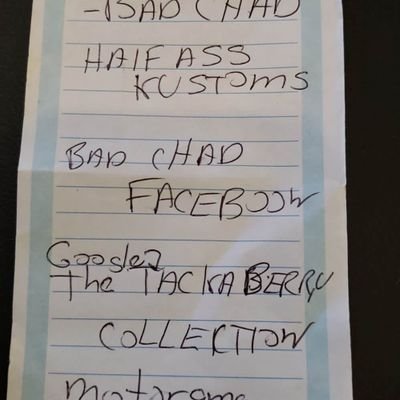 -BAD CHAD
HALF ASS
KUSTOMS
BAD CHAD
FACEBOOK
Google
The TACKABERRY
COLLECTION
motorama